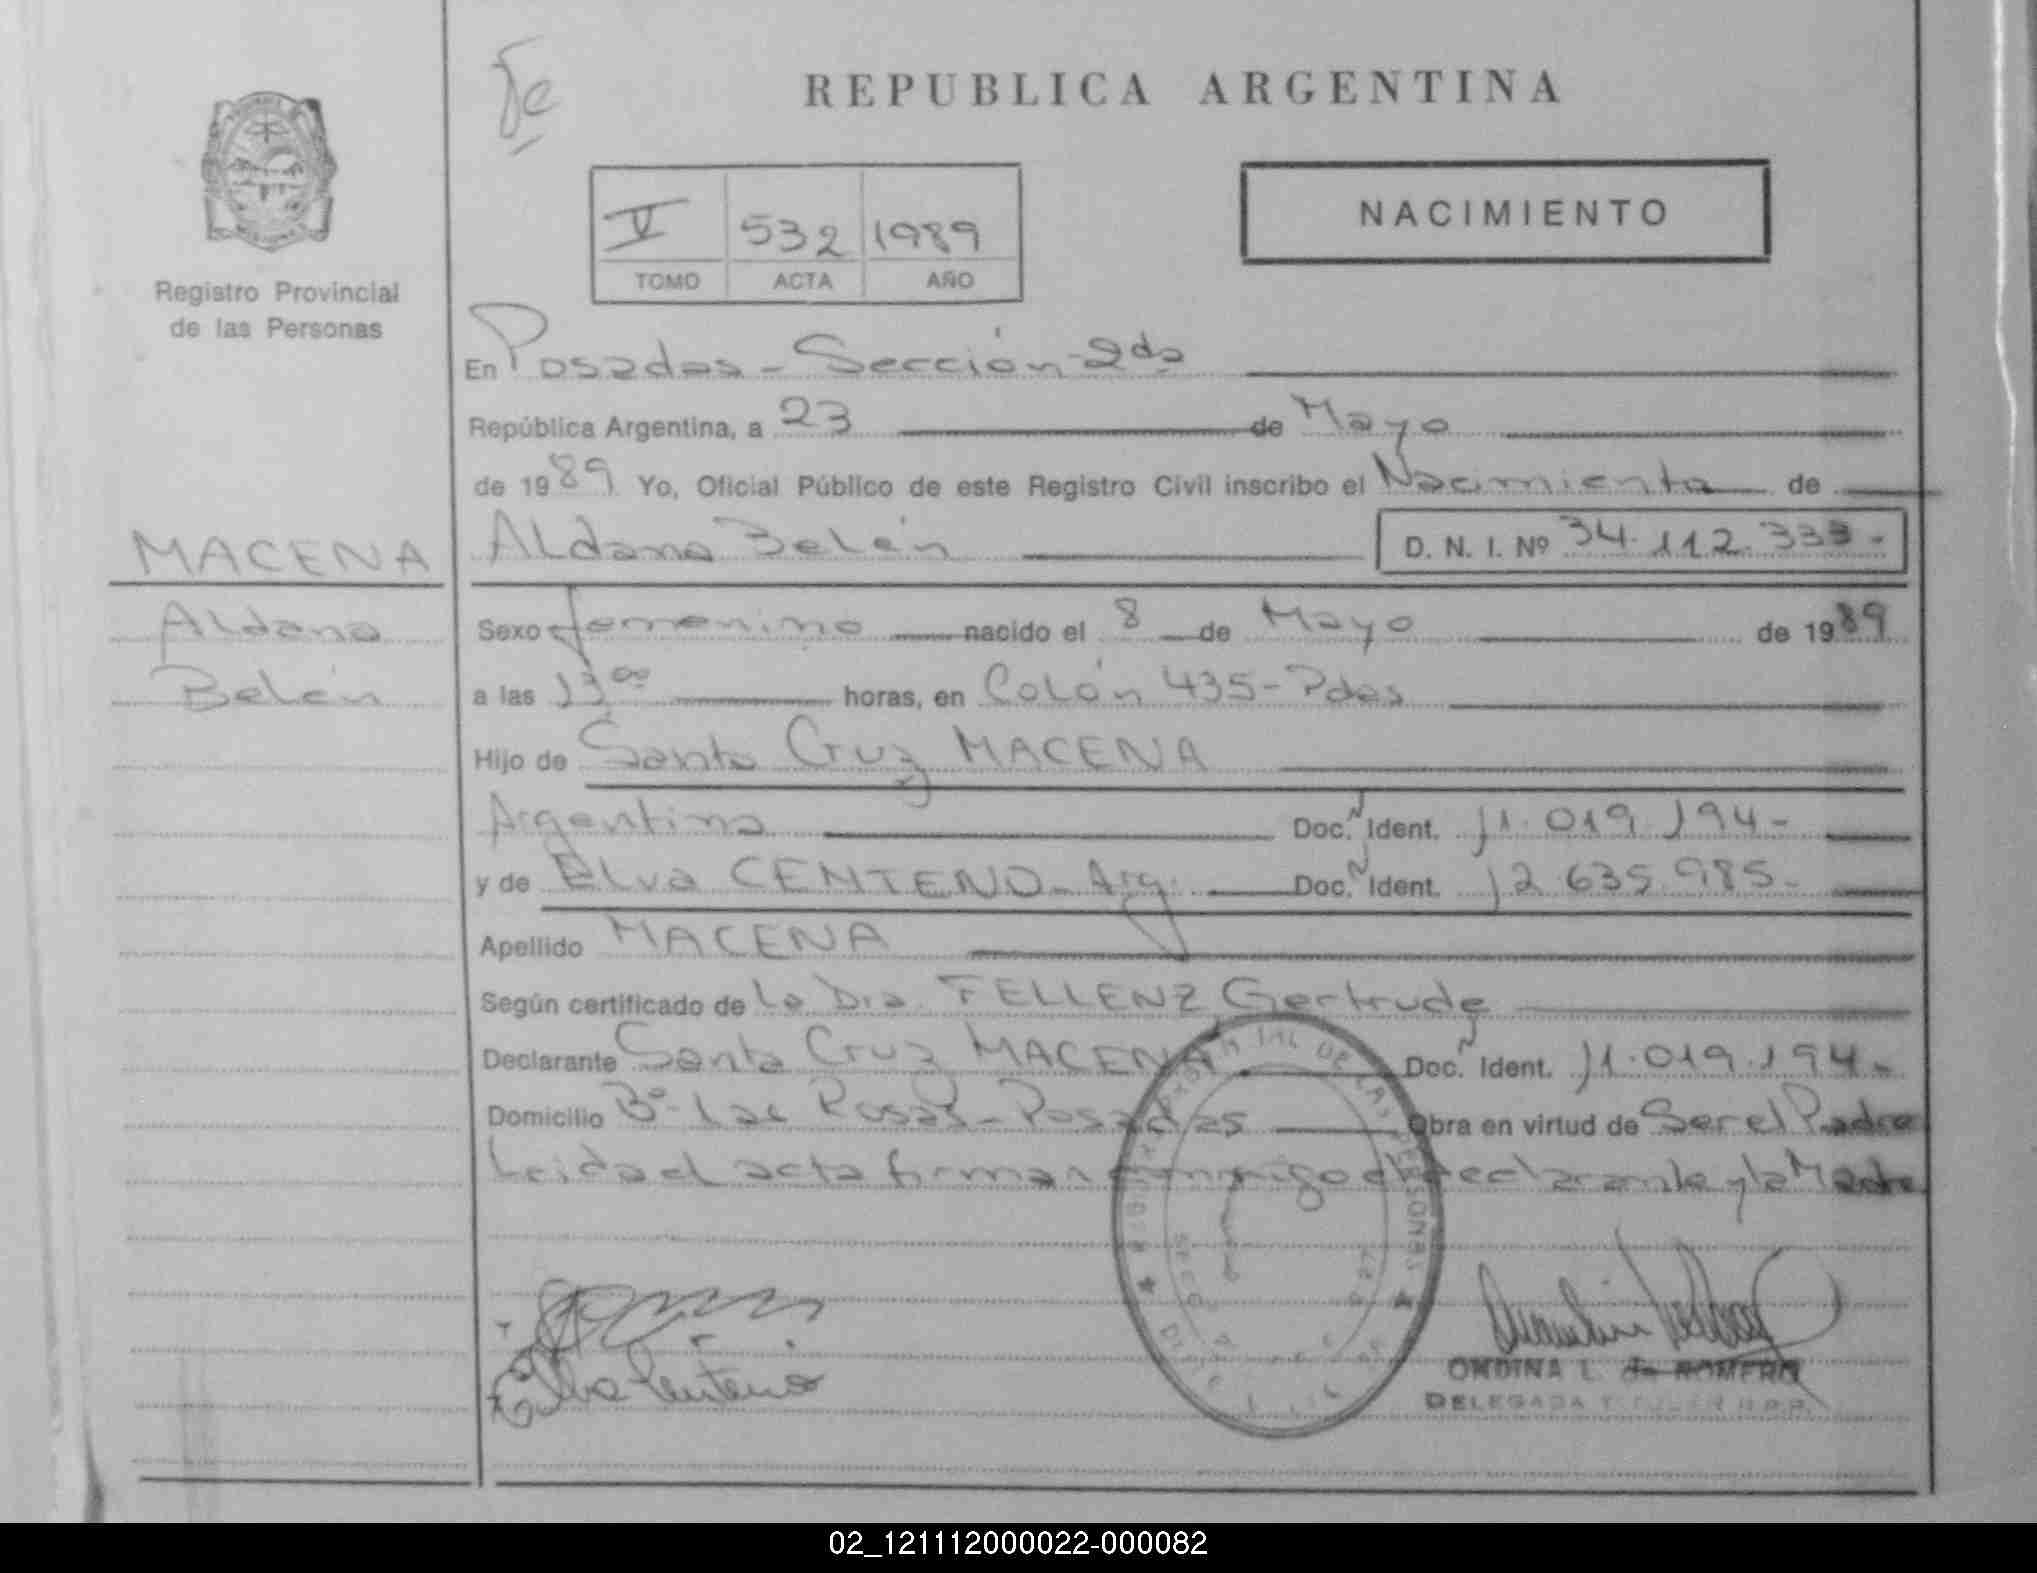 Fe
REPUBLICA ARGENTINA
V 532 1989
TOMO ACTA AÑO
NACIMIENTO
Registro Provincial
de las Personas
En Posadas - Sección 2da
República Argentina, a 23 de Mayo
de 1989 Yo, Oficial Público de este Registro Civil inscribo el Nacimiento de
MACENA
Aldana Belén D. N. I. Nº 34.112.333-
Aldana
Belén
Sexo femenino nacido el 8 de Mayo de 1989
a las 13 00 horas, en Colón 435-Pdas
Hijo de Santa Cruz MACENA
Argentino Doc. N Ident. 11.019.194-
y de Elva CENTENO - Arg. Doc. N Ident. 12.635.985-
Apellido MACENA
Según certificado de la Dra. FELLENZ, Gertrude
Declarante Santa Cruz MACENA Doc. N Ident. 11.019.194-
Domicilio Bº Las Rosas - Posadas Obra en virtud de Ser el Padre
Leida el acta firman conmigo el declarante y la Madre
DE LAS PERSONAS
Elva Centeno
ONDINA L. de ROMERO
DELEGADA TITULAR R.P.P.
02_121112000022-000082